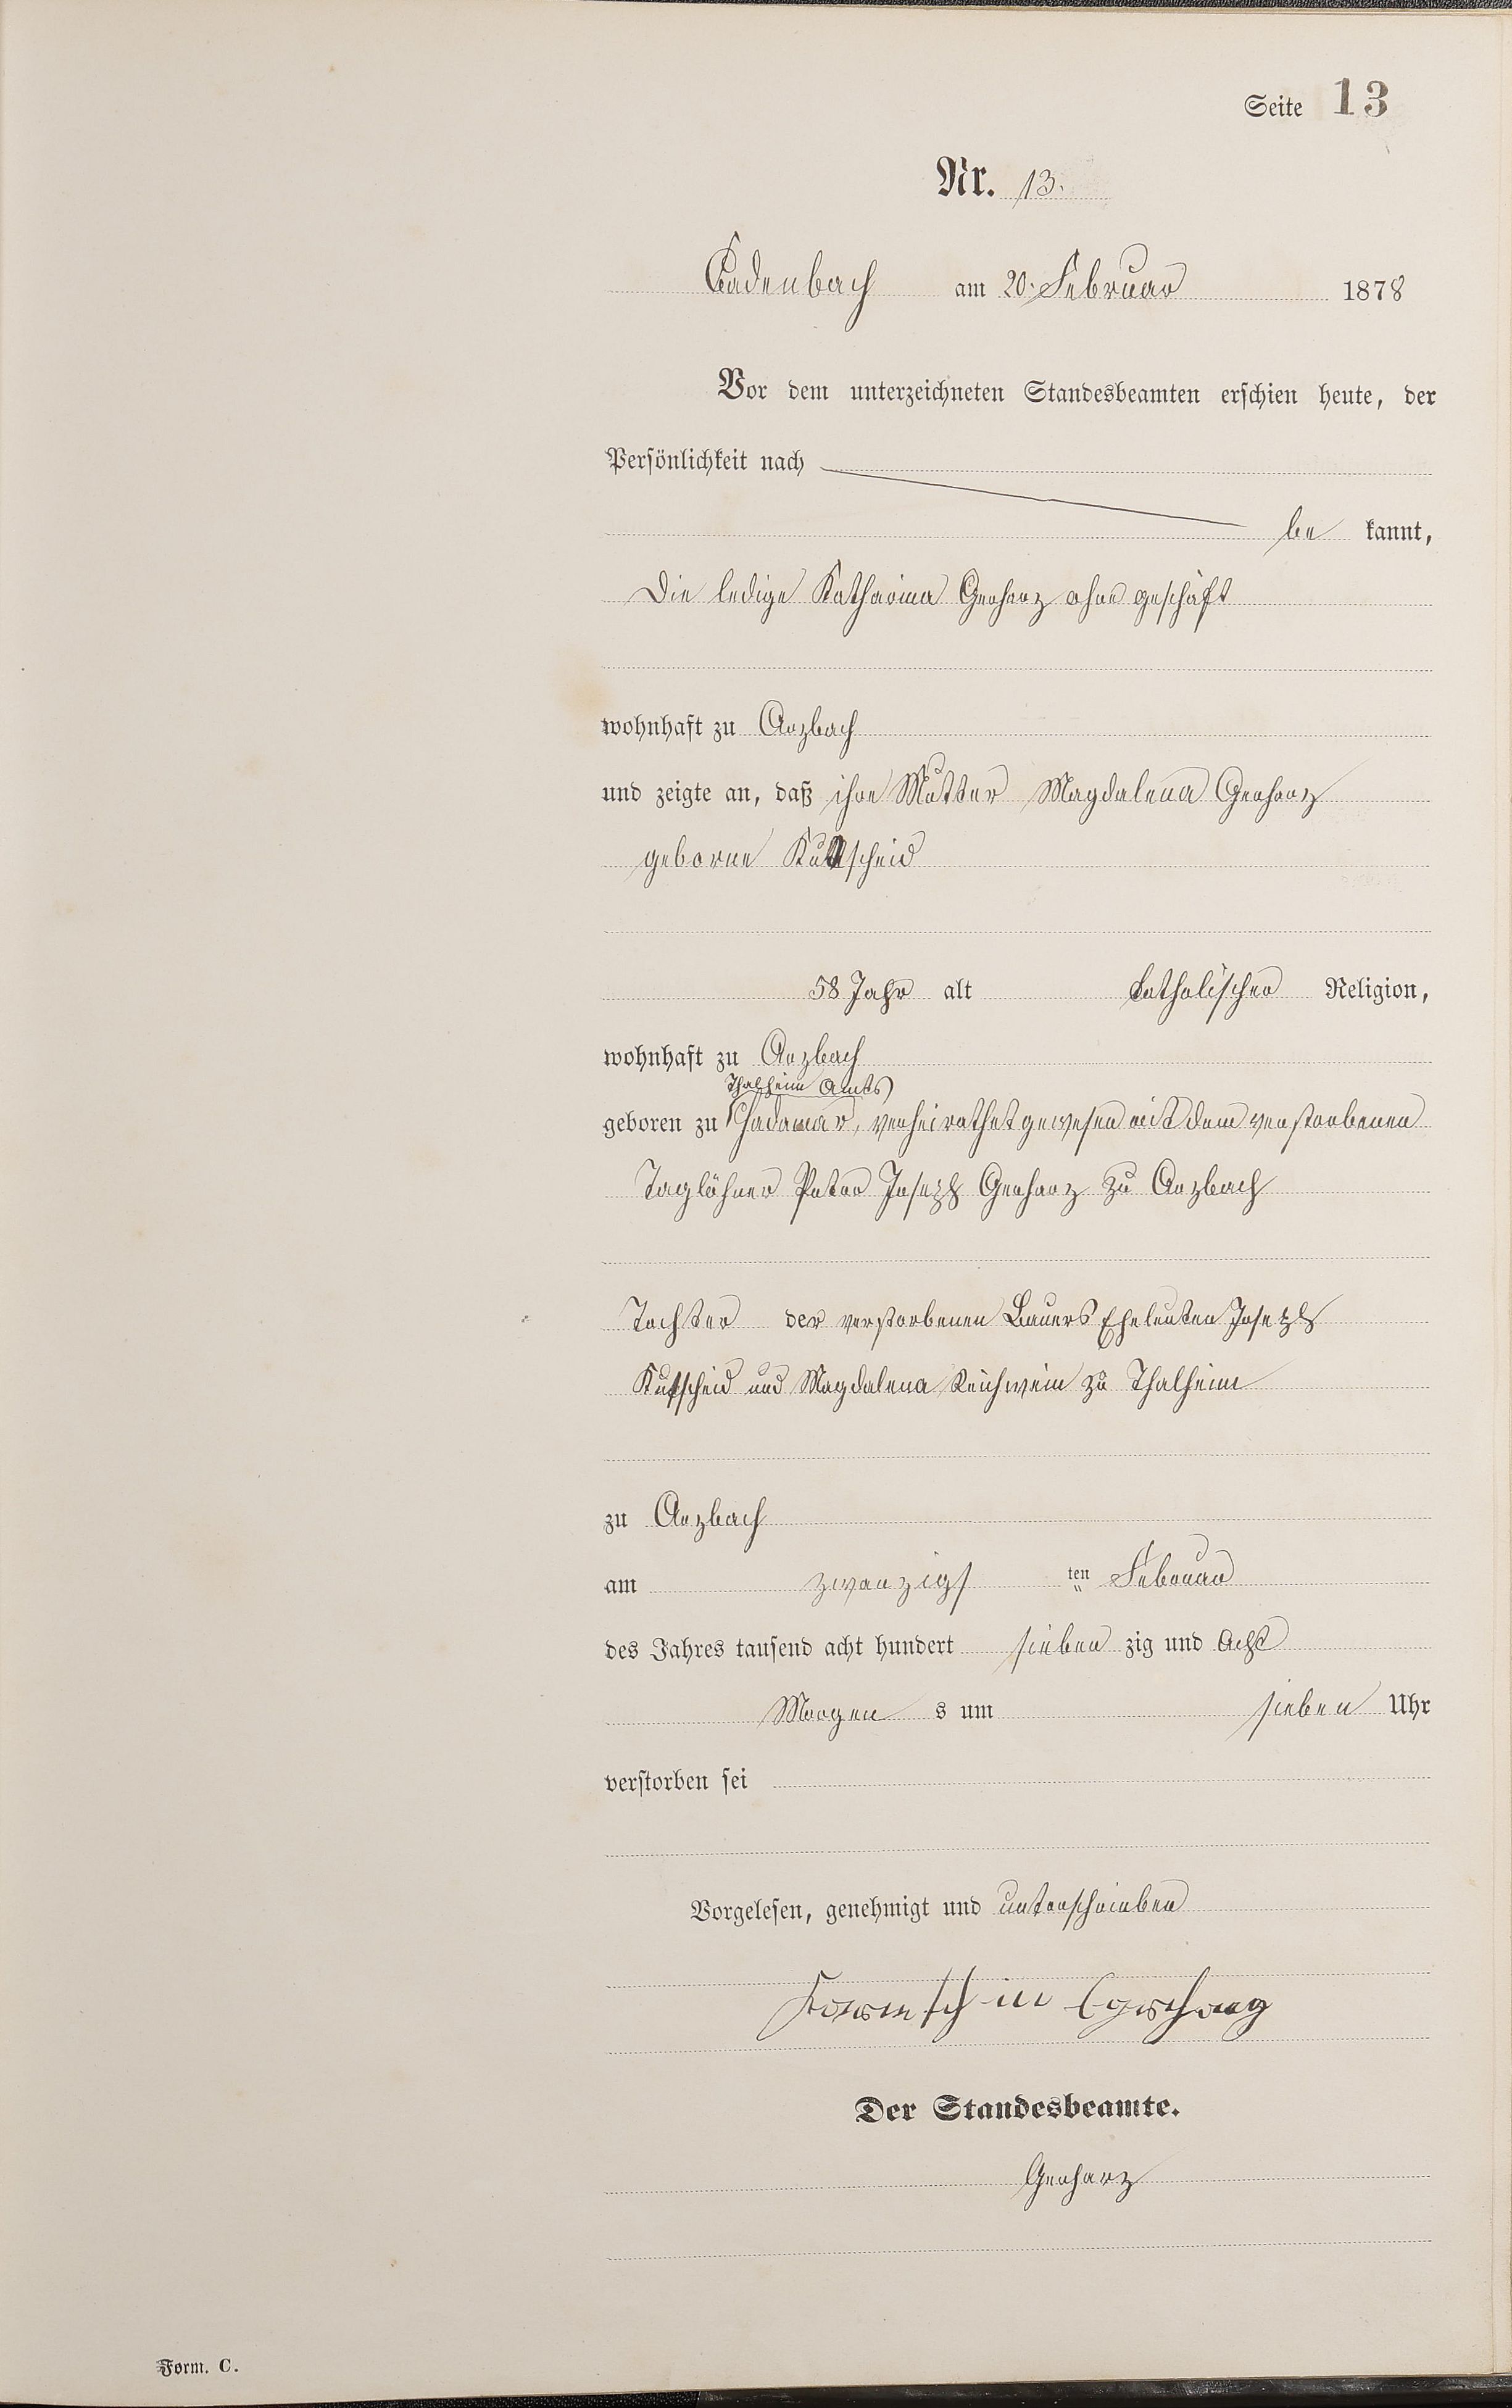 Seite 13
Nr. 13.
Cadenbach am 20. Februar 1878
Vor dem unterzeichneten Standesbeamten erschien heute, der
Persönlichkeit nach
be kannt,
Die ledige Katharina Gerharz ohne geschäft
wohnhaft zu Arzbach
und zeigte an, daß ihre Mutter Magdalena Gerharz
geborne Kutscheid
58 Jahr alt katholischer Religion,
wohnhaft zu Arzbach
Thalheim Amts
geboren zu Hadamar, verheirathet gewesen mit dem verstorbenen
Taglöhner Peter Joseph Gerharz zu Arzbach
Tochter der verstorbenen Bauers Eheleuten Joseph
Kutscheid und Magdalena Reichwein zu Thalheim
zu Arzbach
am zwanzigs ten Februar
des Jahres tausend acht hundert sieben zig und Acht
Morgen s um sieben Uhr
verstorben sei
Vorgelesen, genehmigt und unterschrieben
Der Standesbeamte.
Gerharz
Form. C.